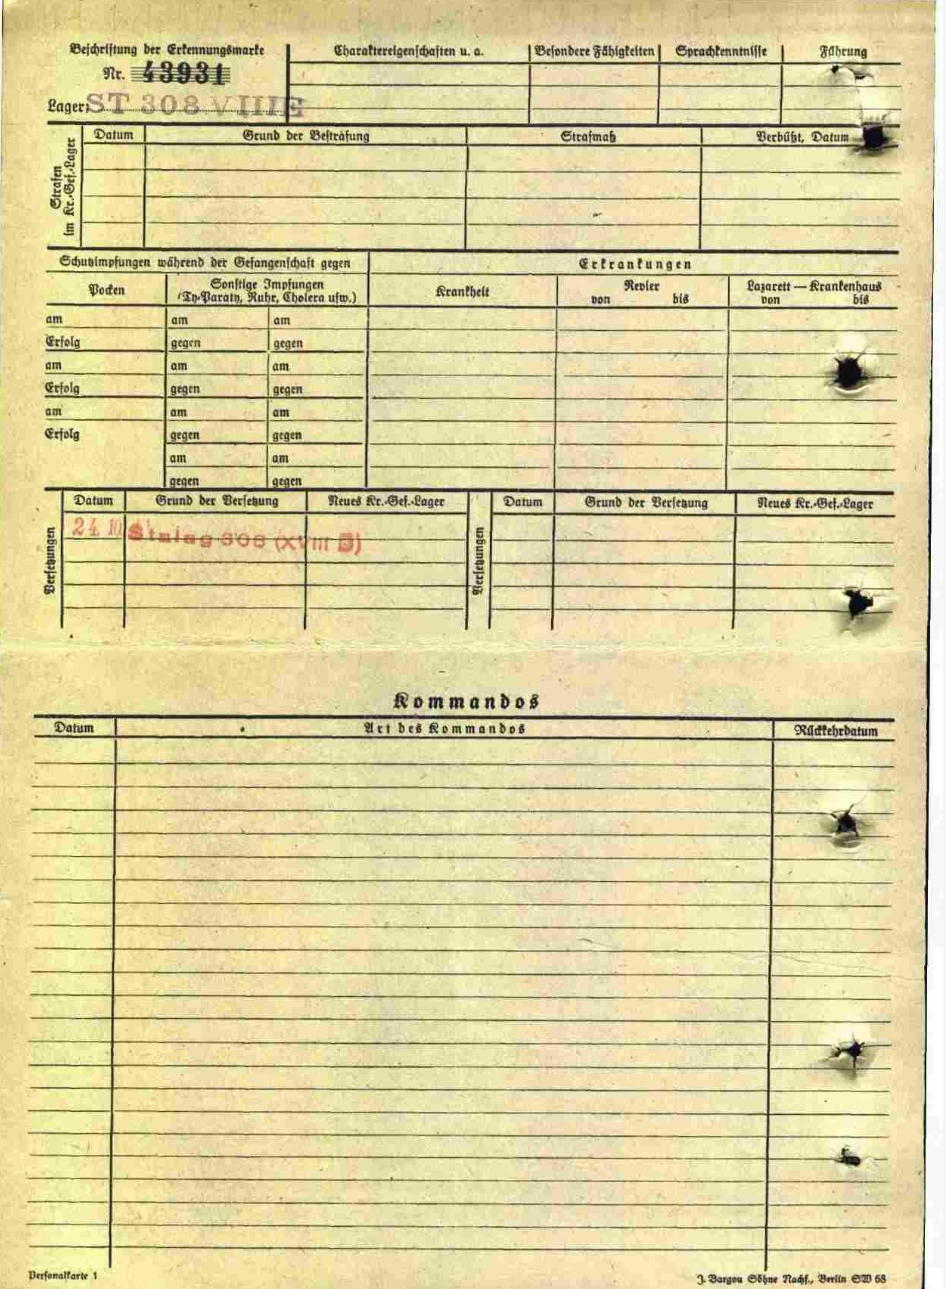 Beschriftung der Erkennungsmarke
Nr. 43931
Lager: ST 308 VIII E
Charaktereigenschaften u. a.
Besondere Fähigkeiten
Sprachkenntnisse
Führung
Strafen im Kr.-Gef.-Lager
Datum
Grund der Bestrafung
Strafmaß
Verbüßt, Datum
Schutzimpfungen während der Gefangenschaft gegen
Erkrankungen
Pocken
Sonstige Impfungen
(Ty-Paraty, Ruhr, Cholera usw.)
Krankheit
Revier
von bis
Lazarett — Krankenhaus
von bis
am am am
Erfolg gegen gegen
am am am
Erfolg gegen gegen
am am am
Erfolg gegen gegen
am am
gegen gegen
Versetzungen
Datum Grund der Versetzung Neues Kr.-Gef.-Lager
24. 10 Stalag 308 (XVIII
Versetzungen
Datum Grund der Versetzung Neues Kr.-Gef.-Lager
Kommandos
Datum Art des Kommandos Rückkehrdatum
Personalkarte 1
J. Bargou Söhne Nachf., Berlin SW 68